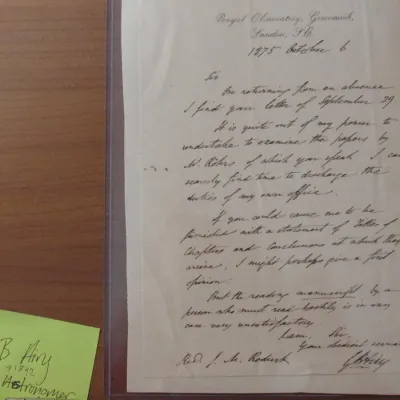 Royal Observatory, Greenwich,
London, S.E.
1875 October 6
Sir
On returning from an absence
I find your letter of September 29
It is quite out of my power to
undertake to examine the papers by
M. of which you speak. I can
scarcely find time to discharge the
duties of my own office.
If you could cause me to be
provided with a statement of Titles of
Chapters and Conclusions at which they
arrive, I might perhaps give a first
opinion.
But the reading manuscript by a
person who must read hastily is in any
case very unsatisfactory
I am, Sir,
Your obedient servant
Revd. J. M.
G B Airy
B Airy
Astronomer